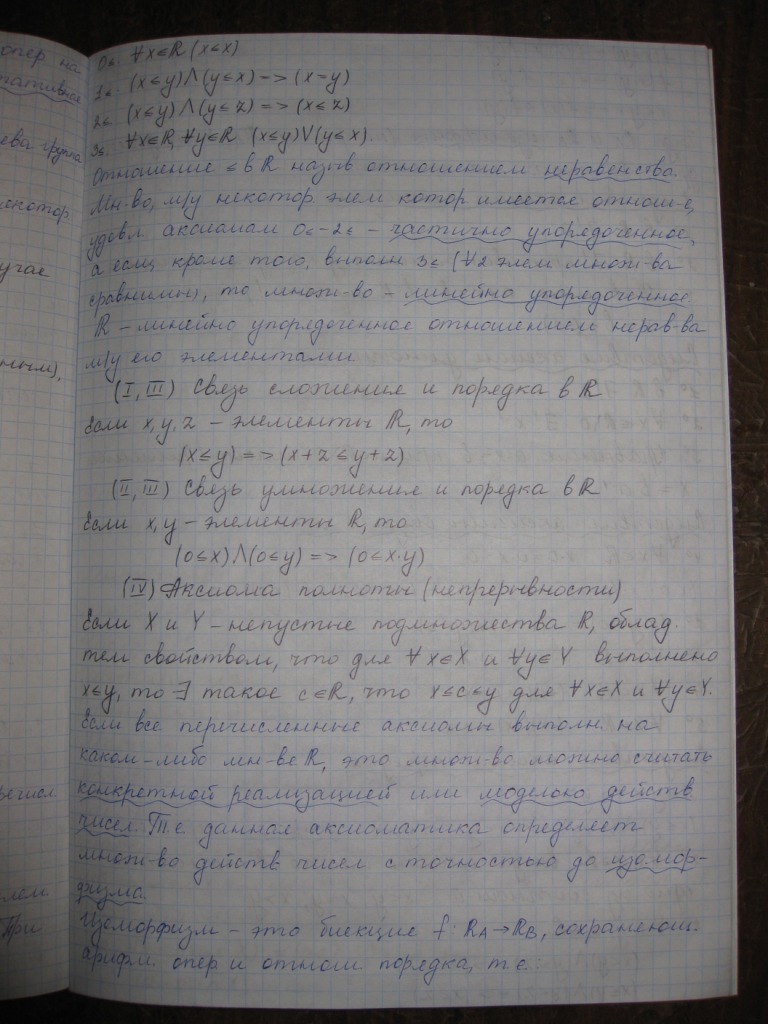 опер на
тативное
ева группа
некотор
учае
ным),
лем.
При
0≤. ∀x∈ℝ (x≤x)
1≤. (x≤y)∧(y≤x)=>(x=y)
2≤. (x≤y)∧(y≤z)=>(x≤z)
3≤. ∀x∈ℝ, ∀y∈ℝ (x≤y)∨(y≤x).
Отношение ≤ в ℝ назыв отношением неравенства.
Мн-во, м/у некотор элем котор имеется отнош-е,
удовл. аксиомам 0≤-2≤ - частично упорядоченное,
а если, кроме того, выполн 3≤ (∀2 элем множ-ва
сравнимы), то множ-во - линейно упорядоченное.
ℝ - линейно упорядоченное отношением нерав-ва
м/у его элементами
(I, III) Связь сложения и порядка в ℝ
Если x,y,z - элементы ℝ, то
(x≤y)=>(x+z≤y+z)
(II, III) Связь умножения и порядка в ℝ
Если x,y - элементы ℝ, то
(0≤x)∧(0≤y)=>(0≤x·y)
(IV) Аксиома полноты (непрерывности)
Если X и Y - непустые подмножества ℝ, облад.
тем свойством, что для ∀x∈X и ∀y∈Y выполнено
x≤y, то ∃ такое c∈ℝ, что x≤c≤y для ∀x∈X и ∀y∈Y.
Если все перечисленные аксиомы выполн. на
каком-либо мн-ве ℝ, это множ-во можно считать
конкретной реализацией или моделью действ
чисел. Т.е данная аксиоматика определяет
множ-во действ чисел с точностью до изомор-
физма.
Изоморфизм - это биекция f: ℝA→ℝB, сохраняющ.
арифм. опер и отнош порядка, т е